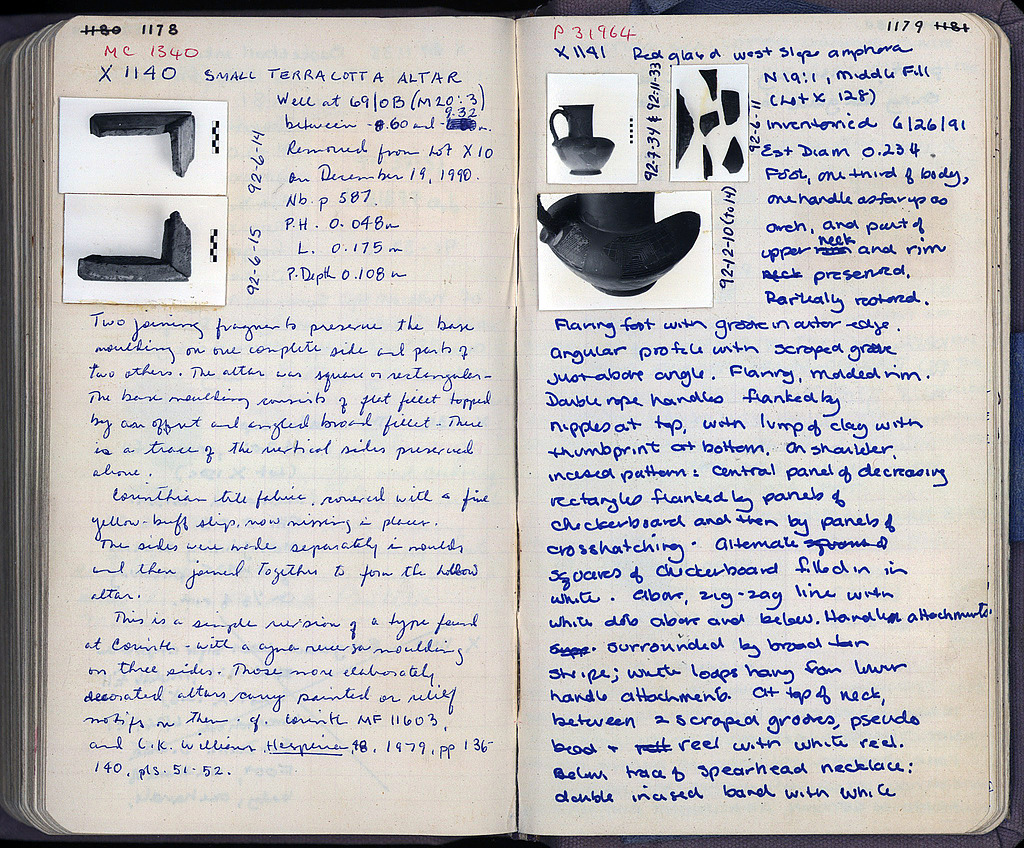 1180 1178
MC 1340
X 1140 SMALL TERRACOTTA ALTAR
Well at 69/OB (M 20:3)
9.32
between -8.60 and - m.
Removed from Lot X 10
on December 19, 1990.
Nb. p 587.
P.H. 0.048m
L. 0.175m
P. Depth 0.108m
92-6-14
92-6-15
Two joining fragments preserve the base
moulding on one complete side and parts of
two others. The altar was square or rectangular-
The base moulding consists of flat fillet topped
by an offset and angled broad fillet - There
is a trace of the vertical sides preserved
above.
Corinthian tile fabric, covered with a fine
yellow-buff slip, now missing in places.
The sides were made separately in moulds
and then joined together to form the hollow
altar.
This is a simple version of a type found
at Corinth - with a cyma reversa moulding
on three sides. Those more elaborately
decorated altars carry painted or relief
motifs on them. cf. Corinth MF 11603,
and C.K. Williams, Hesperia 48, 1979, pp 136-
140, pls. 51-52.
1179 1181
P 31964
X 1141 Red glazed west slope amphora
N 19:1, Middle Fill
(Lot X 128)
Inventoried 6/26/91
Est Diam 0.234
Foot, one third of body,
one handle as far up as
arch, and part of
neck
upper and rim
neck preserved.
Partially restored.
92-7-34 & 92-11-33
92-6-11
92-12-10 (to 14)
Flaring foot with groove in outer edge.
Angular profile with scraped groove
just above angle. Flaring, molded rim.
Double rope handles flanked by
nipples at top, with lump of clay with
thumbprint at bottom. On shoulder,
incised pattern: central panel of decreasing
rectangles flanked by panels of
checkerboard and then by panels of
crosshatching. Alternate squares of
squares of checkerboard filled in in
white. Above, zig-zag line with
white dots above and below. Handle attachments
surrounded by broad tan
stripe; white loops hang from lower
handle attachments. At top of neck,
between 2 scraped grooves, pseudo
bead + reel with white reel.
Below trace of spearhead necklace:
double incised band with white